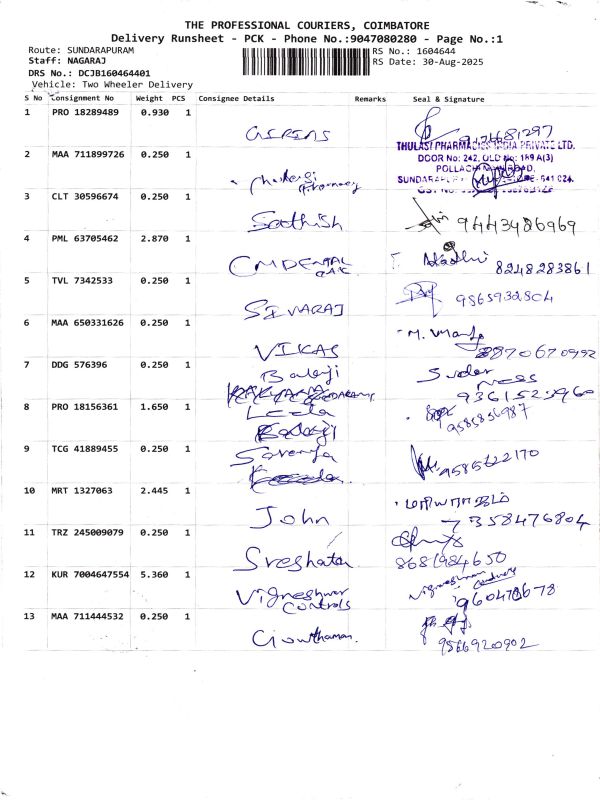 THE PROFESSIONAL COURIERS, COIMBATORE
Delivery Runsheet - PCK - Phone No.:9047080280 - Page No.:1
Route: SUNDARAPURAM RS No.: 1604644
Staff: NAGARAJ RS Date: 30-Aug-2025
DRS No.: DCJB160464401
Vehicle: Two Wheeler Delivery
S No Consignment No Weight PCS Consignee Details Remarks Seal & Signature
1 PRO 18289489 0.930 1
THULASI PHARMACIES INDIA PRIVATE LTD.
2 MAA 711899726 0.250 1
DOOR No: 242, OLD No: 189 A(3)
3 CLT 30596674 0.250 1
Sathish 9443486969
4 PML 63705462 2.870 1
CM DENTAL 8248283861
5 TVL 7342533 0.250 1
SIVARAJ 9865932804
6 MAA 650331626 0.250 1
VIKAS 8870670992
7 DDG 576396 0.250 1
Balaji
8 PRO 18156361 1.650 1
Leela
9 TCG 41889455 0.250 1
9585622170
10 MRT 1327063 2.445 1
John 7358476804
11 TRZ 245009079 0.250 1
8681984650
12 KUR 7004647554 5.360 1
Vigneshwar
Controls
13 MAA 711444532 0.250 1
Gowthaman. 9566920902